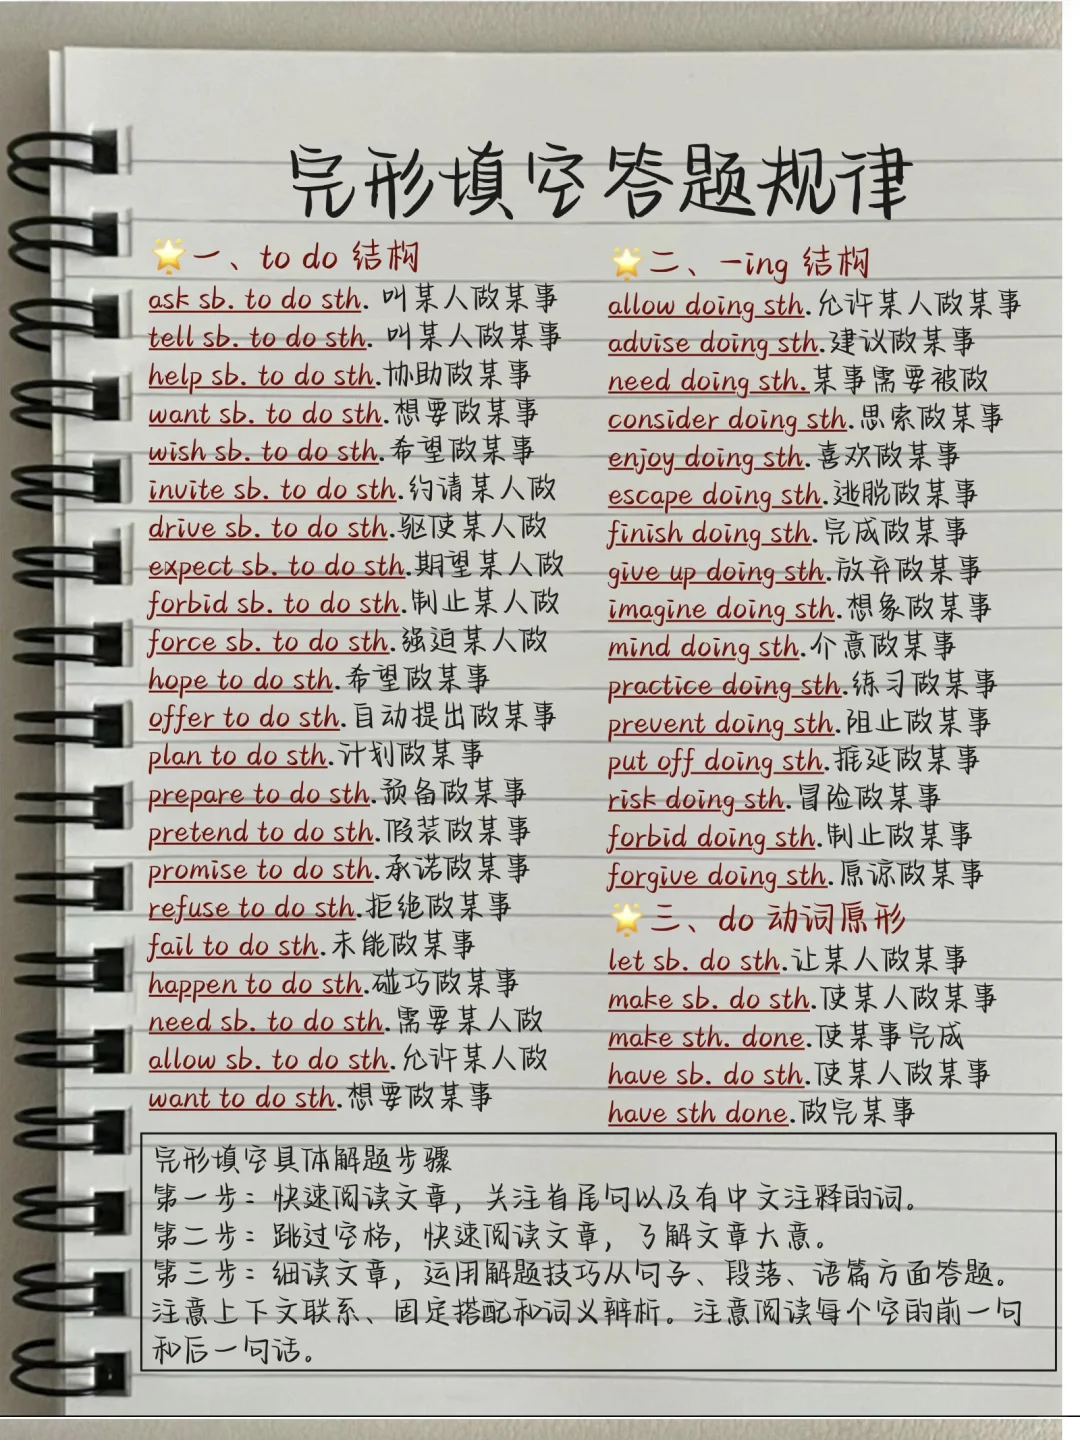 完形填空答题规律
🌟一、to do 结构
ask sb. to do sth. 叫某人做某事
tell sb. to do sth. 叫某人做某事
help sb. to do sth.协助做某事
want sb. to do sth.想要做某事
wish sb. to do sth.希望做某事
invite sb. to do sth.约请某人做
drive sb. to do sth.驱使某人做
expect sb. to do sth.期望某人做
forbid sb. to do sth.制止某人做
force sb. to do sth.强迫某人做
hope to do sth.希望做某事
offer to do sth.自动提出做某事
plan to do sth.计划做某事
prepare to do sth.预备做某事
pretend to do sth.假装做某事
promise to do sth.承诺做某事
refuse to do sth.拒绝做某事
fail to do sth.未能做某事
happen to do sth.碰巧做某事
need sb. to do sth.需要某人做
allow sb. to do sth.允许某人做
want to do sth.想要做某事
🌟二、-ing 结构
allow doing sth.允许某人做某事
advise doing sth.建议做某事
need doing sth.某事需要被做
consider doing sth.思索做某事
enjoy doing sth.喜欢做某事
escape doing sth.逃脱做某事
finish doing sth.完成做某事
give up doing sth.放弃做某事
imagine doing sth.想象做某事
mind doing sth.介意做某事
practice doing sth.练习做某事
prevent doing sth.阻止做某事
put off doing sth.推延做某事
risk doing sth.冒险做某事
forbid doing sth.制止做某事
forgive doing sth.原谅做某事
🌟三、do 动词原形
let sb. do sth.让某人做某事
make sb. do sth.使某人做某事
make sth. done.使某事完成
have sb. do sth.使某人做某事
have sth done.做完某事
完形填空具体解题步骤
第一步：快速阅读文章，关注首尾句以及有中文注释的词。
第二步：跳过空格，快速阅读文章，了解文章大意。
第三步：细读文章，运用解题技巧从句子、段落、语篇方面答题。
注意上下文联系、固定搭配和词义辨析。注意阅读每个空的前一句
和后一句话。